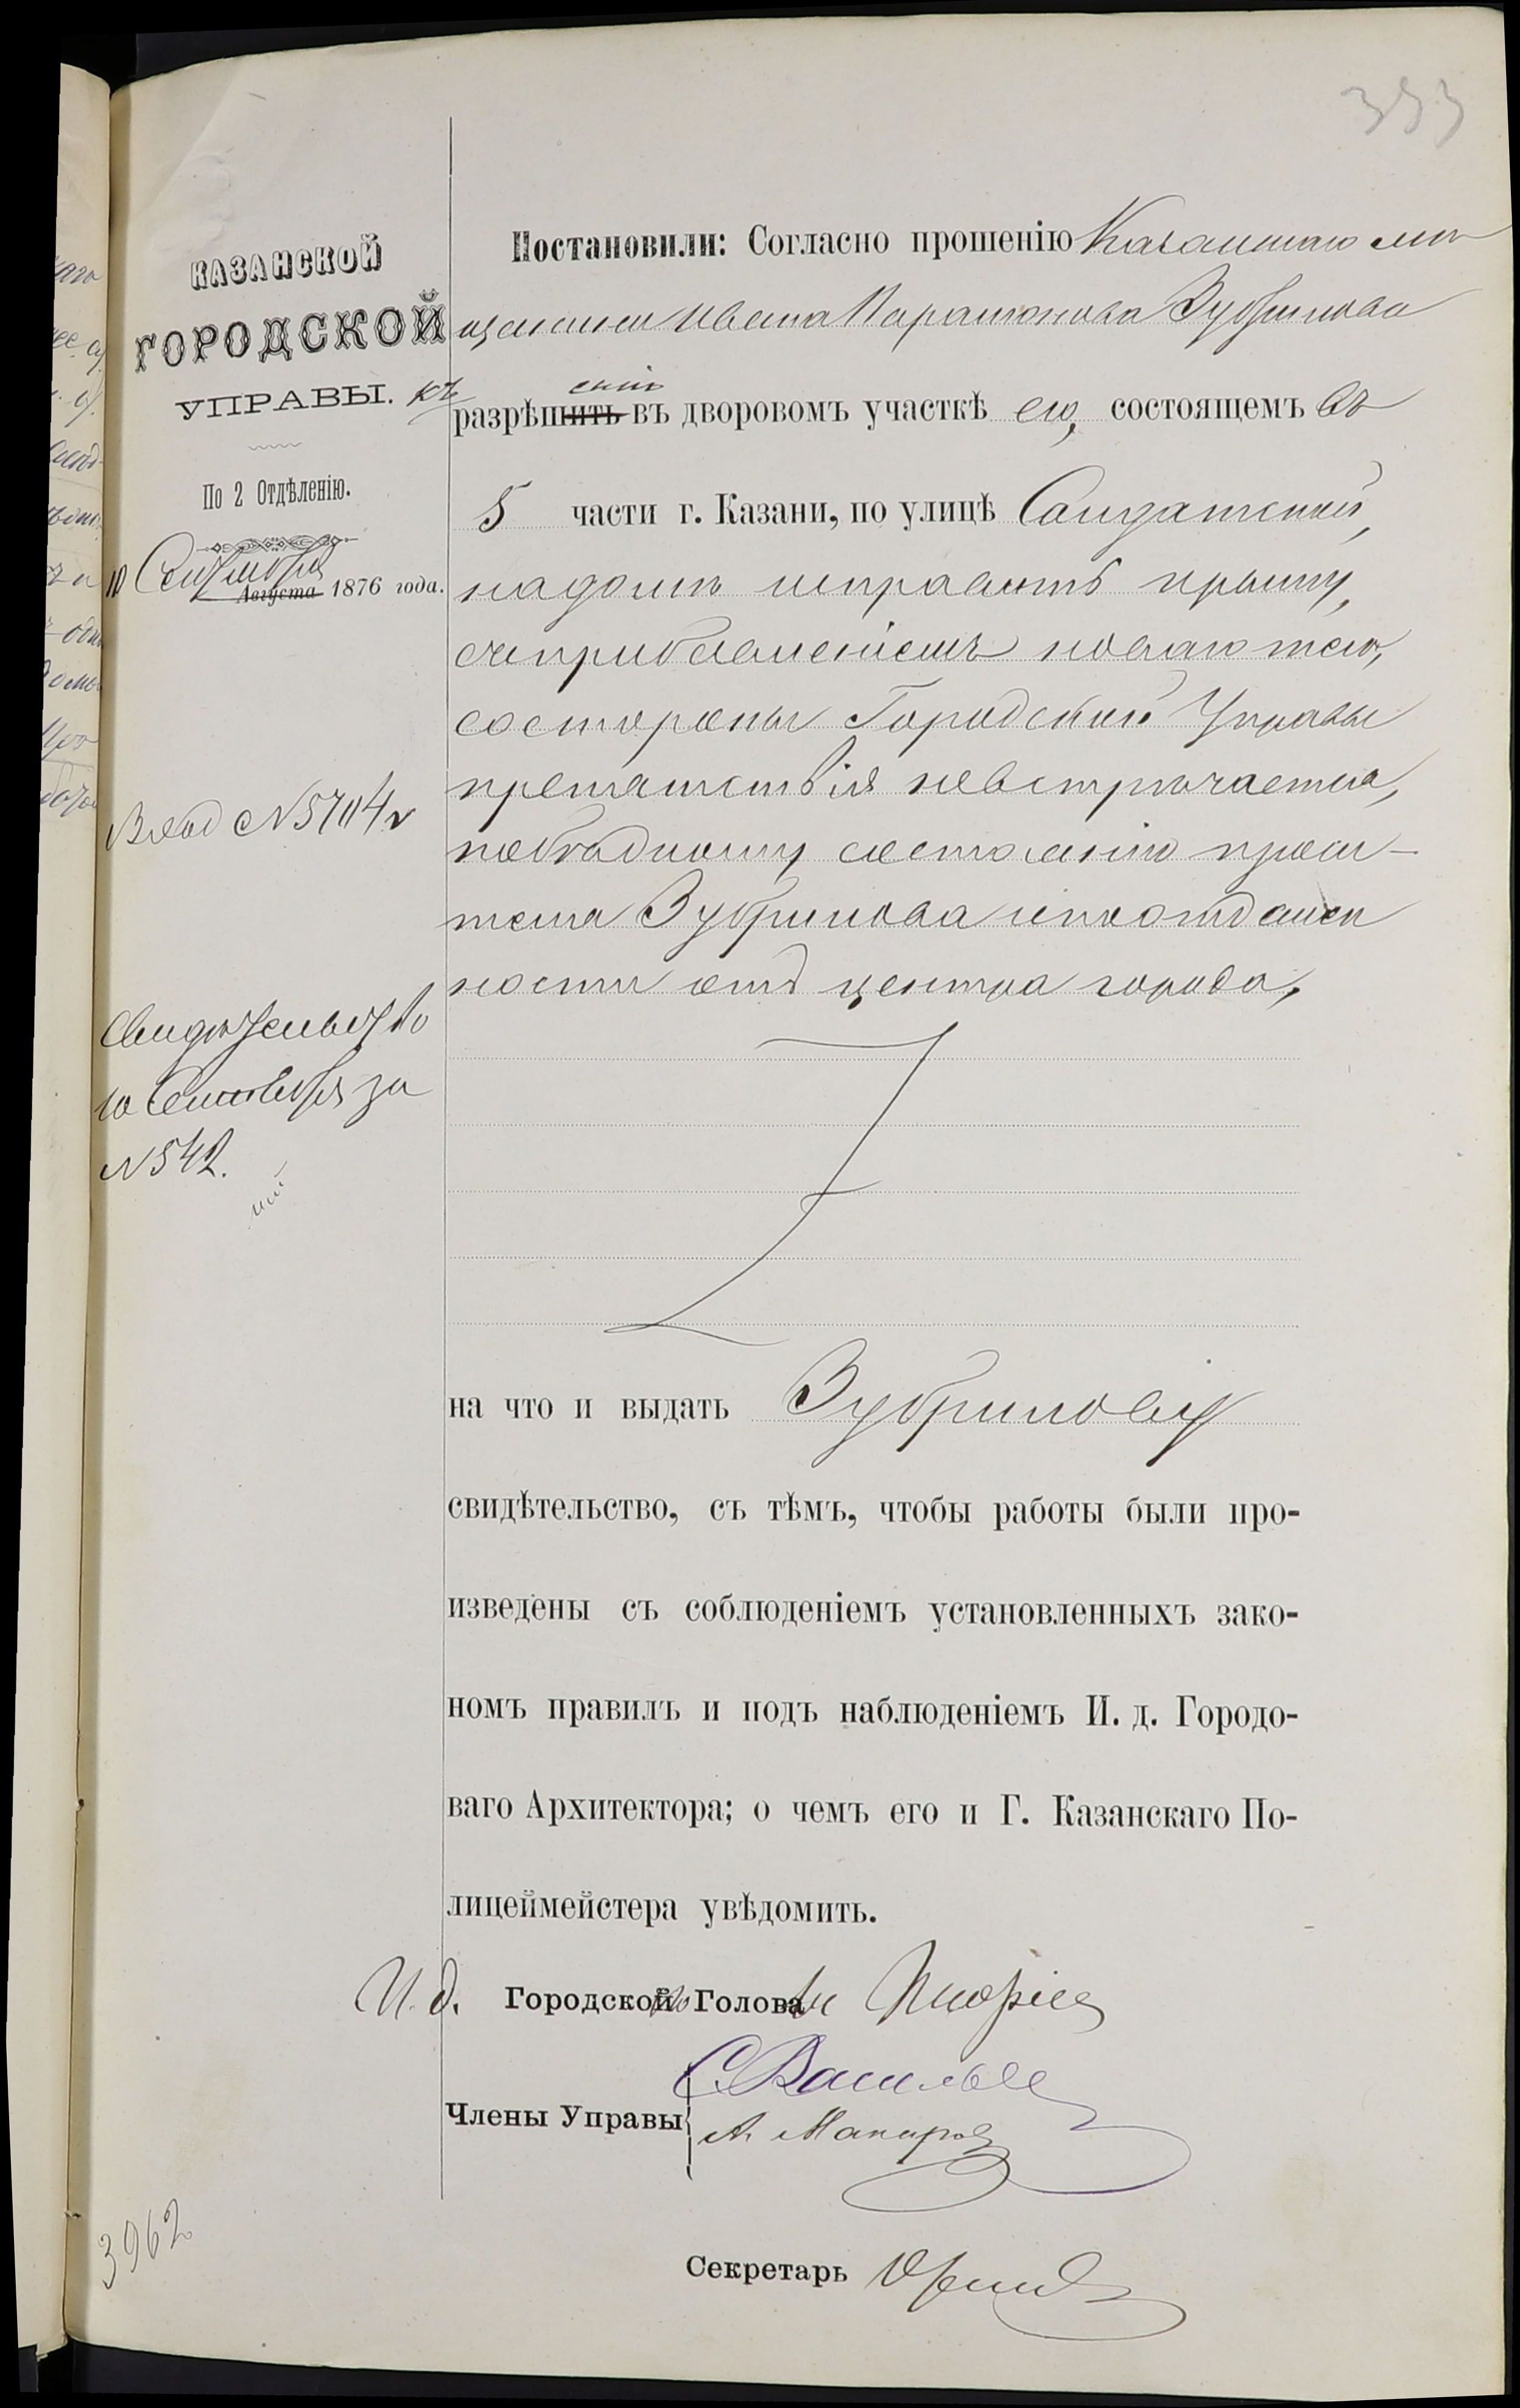 353
КАЗАНСКОЙ
ГОРОДСКОЙ
УПРАВЫ.
По 2 Отдѣленію.
10 Сентября
Августа 1876 года.
Вход № 5704
Свидѣтельство
10 Сентября за
№ 542.
3962
Постановили: Согласно прошенію Казанскаго мѣ
щанина Ивана Харитонова Зубринова
къ разрѣшить енію въ дворовомъ участкѣ его, состоящемъ въ
5 части г. Казани, по улицѣ Солдатской,
надомѣ исправить крышу,
съприбавленіемъ новаго теса,
состороны Городской Управы
препятствія невстрѣчается,
побѣдному состоянію проси-
теля Зубринова ипоотдален
ности отъ центра города,
на что и выдать Зубринову
свидѣтельство, съ тѣмъ, чтобы работы были про-
изведены съ соблюденіемъ установленныхъ зако-
номъ правилъ и подъ наблюденіемъ И. д. Городо-
ваго Архитектора; о чемъ его и Г. Казанскаго По-
лицеймейстера увѣдомить.
И. д. Городского Головы
Члены Управы С. Васильев
А. Макаров
Секретарь